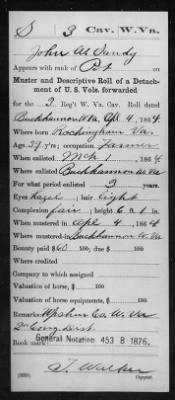 S 3 Cav. W. Va.
John Al Sandy
Appears with rank of Pvt on
Muster and Descriptive Roll of a Detachment
of U. S. Vols. forwarded
for the 2 Reg't W. Va. Cav. Roll dated
Buckhannon W Va, Apl 4, 1864
Where born Rockingham Va.
Age 27 y'rs; occupation Farmer
When enlisted Mch 1, 1864
Where enlisted Buckhannon W. Va
For what period enlisted 3 years.
Eyes hazel; hair light
Complexion fair; height 6 ft. 1 in.
When mustered in Apr 4, 1864
Where mustered in Buckhannon W. Va
Bounty paid $60 100; due $ 100
Where credited
Company to which assigned
Valuation of horse, $ 100
Valuation of horse equipments, $ 100
Remarks: Upshur Co, W. Va
2" Cong. Dist.
Book mark: General Notation 453 B 1876,
T. Walker
Copyist.